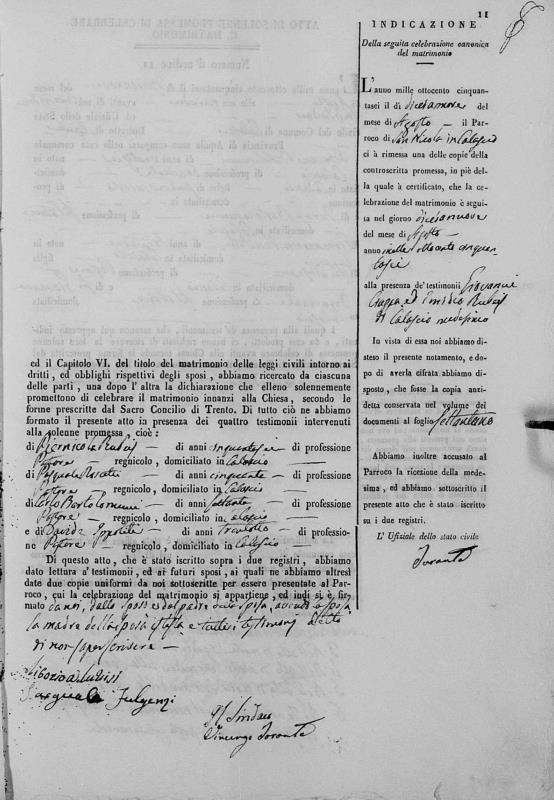 11
INDICAZIONE
Della seguita celebrazione canonica
del matrimonio
L'anno mille ottocento cinquan-
tasei il dì dicianove del
mese di Agosto — il Par-
roco di San Nicola in Calascio
ci à rimessa una delle copie della
controscritta promessa, in piè del-
la quale à certificato, che la ce-
lebrazione del matrimonio è segui-
ta nel giorno diciannove
del mese di Agosto —
anno mille ottocento cinquan-
tasei
alla presenza de' testimonii Giovanni
ed Emidio
di Calascio medesimo
In vista di essa noi abbiamo di-
steso il presente notamento, e do-
po di averla cifrata abbiamo di-
sposto, che fosse la copia anzi-
detta conservata nel volume dei
documenti al foglio settantuno
Abbiamo inoltre accusato al
Parroco la ricezione della mede-
sima, ed abbiamo sottoscritto il
presente atto che è stato iscritto
su i due registri.
L' Ufiziale dello stato civile
ed il Capitolo VI. del titolo del matrimonio delle leggi civili intorno ai
dritti, ed obblighi rispettivi degli sposi, abbiamo ricercato da ciascuna
delle parti, una dopo l' altra la dichiarazione che elleno solennemente
promettono di celebrare il matrimonio innanzi alla Chiesa, secondo le
forme prescritte dal Sacro Concilio di Trento. Di tutto ciò ne abbiamo
formato il presente atto in presenza dei quattro testimonii intervenuti
alla solenne promessa, cioè:
di Piernicola — di anni cinquantasei di professione
regnicolo, domiciliato in Calascio —
di Pasquale — di anni cinquanta — di professione
regnicolo, domiciliato in Calascio —
di Carlo Bortolomucci — di anni settanta — di professione
— regnicolo, domiciliato in Calascio —
e di Davide Ippoliti — di anni trentotto — di professio-
ne — regnicolo, domiciliato in Calascio —
Di questo atto, che è stato iscritto sopra i due registri, abbiamo
dato lettura a' testimonii, ed ai futuri sposi, ai quali ne abbiamo altresì
date due copie uniformi da noi sottoscritte per essere presentate al Par-
roco, cui la celebrazione del matrimonio si appartiene, ed indi si è fir-
mato da noi, dallo sposo e dal padre della sposa, avendo la sposa
la madre della sposa istessa e tutti i testimonj detto
di non saper scrivere —
Pasquale Fulgenzi
Il Sindaco
Vincenzo